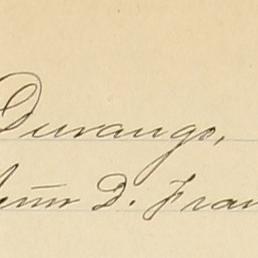 Durango,
D. Fran